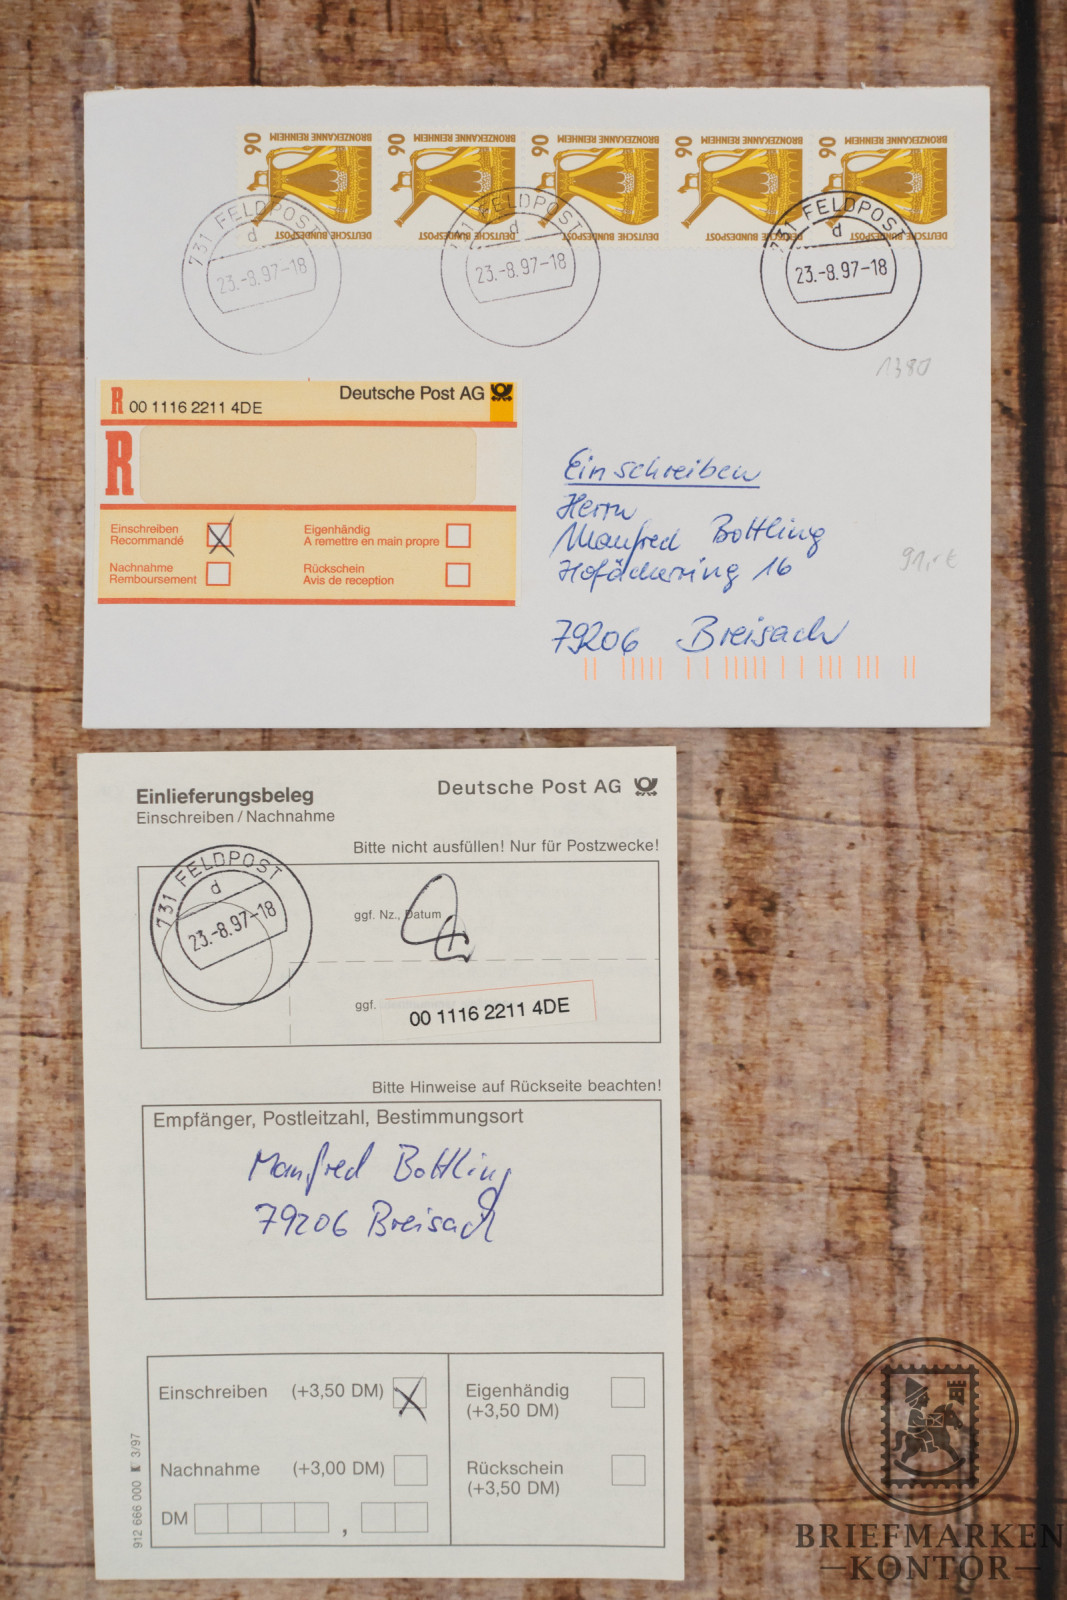 90 BRONZEKANNE REINHEIM DEUTSCHE BUNDESPOST
90 BRONZEKANNE REINHEIM DEUTSCHE BUNDESPOST
90 BRONZEKANNE REINHEIM DEUTSCHE BUNDESPOST
90 BRONZEKANNE REINHEIM DEUTSCHE BUNDESPOST
90 BRONZEKANNE REINHEIM DEUTSCHE BUNDESPOST
731 FELDPOST
d
23.-8.97-18
731 FELDPOST
d
23.-8.97-18
731 FELDPOST
d
23.-8.97-18
1380
R 00 1116 2211 4DE Deutsche Post AG
R
Einschreiben
Recommandé
Eigenhändig
A remettre en main propre
Nachnahme
Remboursement
Rückschein
Avis de reception
Einschreiben
Herrn
Manfred Bottling
Hofäckerring 16
79206 Breisach
91,-€
Einlieferungsbeleg
Einschreiben / Nachnahme
Deutsche Post AG
Bitte nicht ausfüllen! Nur für Postzwecke!
731 FELDPOST
d
23.-8.97-18
ggf. Nz., Datum
ggf.
00 1116 2211 4DE
Bitte Hinweise auf Rückseite beachten!
Empfänger, Postleitzahl, Bestimmungsort
Manfred Bottling
79206 Breisach
Einschreiben (+3,50 DM)
Eigenhändig
(+3,50 DM)
Nachnahme (+3,00 DM)
Rückschein
(+3,50 DM)
DM ,
912 666 000 3/97
BRIEFMARKEN
KONTOR